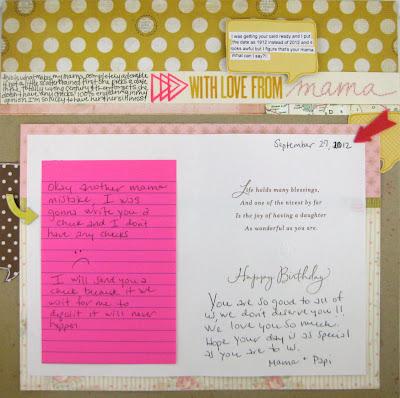 I was getting your card ready and I put
the date as 1912 instead of 2012 and it
looks awful but I figure that's your mama.
What can I say?!
this is what makes my mama completely adorable
a little scatterbrained first she picks a date
in the totally wrong century & then forgets she
doesn't have any checks! 100% endearing in my
opinion. I'm so lucky to have her & her silliness!
WITH LOVE FROM mama
September 27, 2012
Okay another mama
mistake, I was
gonna write you a
check and I don't
have any checks
:(
I will send you a
check because if we
wait for me to
deposit it will never
happen
Life holds many blessings,
And one of the nicest by far
Is the joy of having a daughter
As wonderful as you are.
Happy Birthday
You are so good to all of
us, we don't deserve you!!
We love you so much.
Hope your day is as special
as you are to us.
Mama + Papi